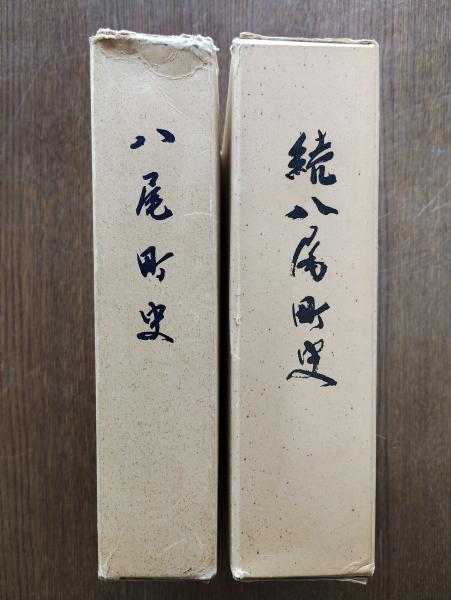 八尾町史
続八尾町史